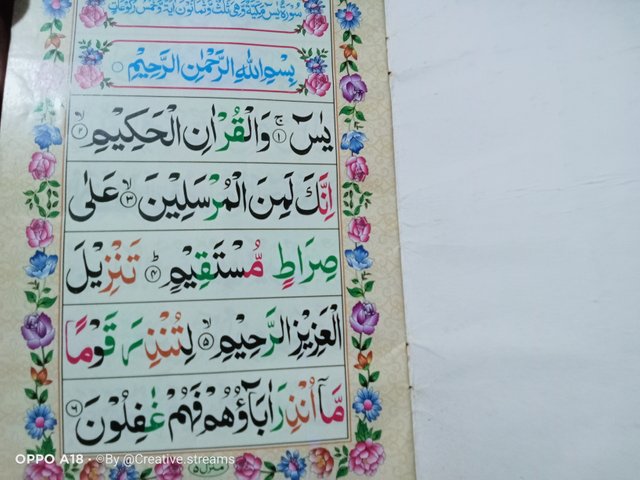 سُوْرَةُ يٰسٓ مَكِّيَّةٌ وَّهِيَ ثَلٰثٌ وَّثَمَانُوْنَ اٰيَةً وَّخَمْسُ رُكُوْعَاتٍ
بِسْمِ اللّٰهِ الرَّحْمٰنِ الرَّحِيْمِ
يٰسٓ ۚ﴿۱﴾ وَالْقُرْاٰنِ الْحَكِيْمِ ۙ﴿۲﴾
اِنَّكَ لَمِنَ الْمُرْسَلِيْنَ ۙ﴿۳﴾ عَلٰى
صِرَاطٍ مُّسْتَقِيْمٍ ؕ﴿۴﴾ تَنْزِيْلَ
الْعَزِيْزِ الرَّحِيْمِ ۙ﴿۵﴾ لِتُنْذِرَ قَوْمًا
مَّاۤ اُنْذِرَ اٰبَآؤُهُمْ فَهُمْ غٰفِلُوْنَ ﴿۶﴾
منزل ۵
OPPO A18 · ©By @Creative.streams